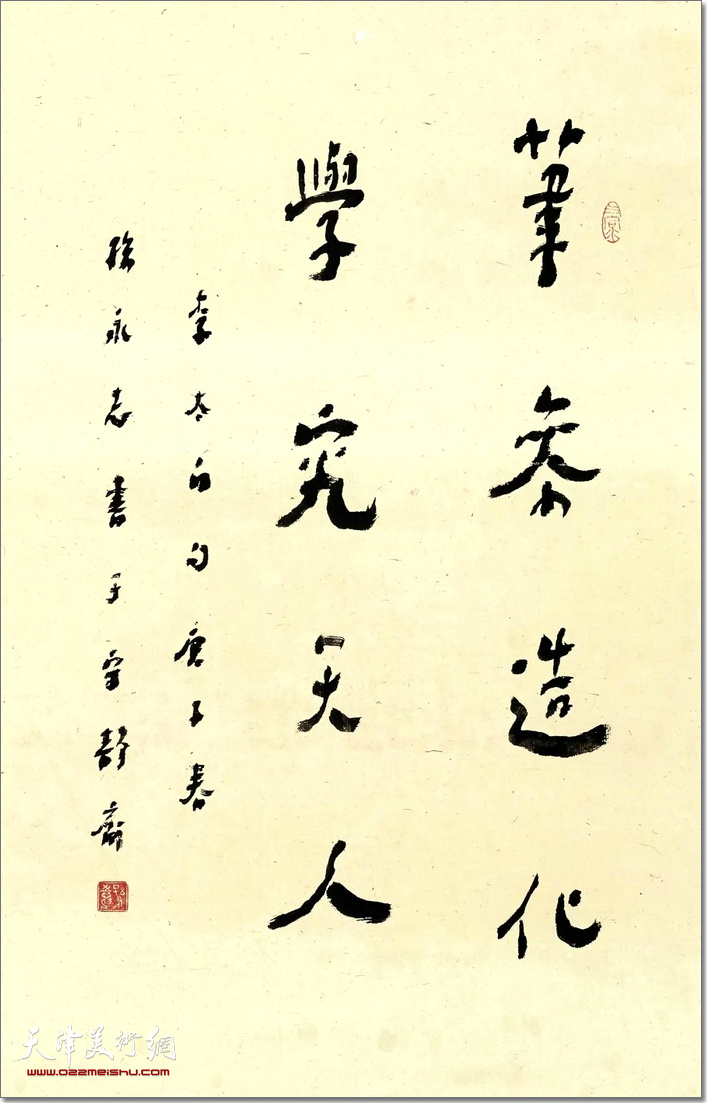 筆參造化
學究天人
李太白句庚子春
孫永志書于守静齋
天津美術網
www.022meishu.com